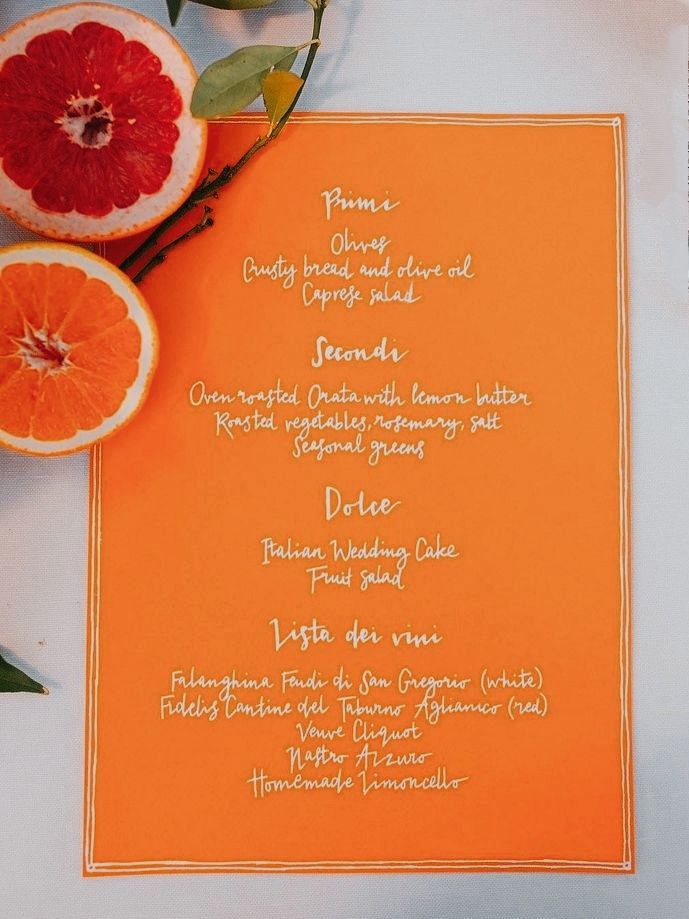 Primi
Olives
Crusty bread and olive oil
Caprese salad
Secondi
Oven roasted Orata with lemon butter
Roasted vegetables, rosemary, salt
Seasonal greens
Dolce
Italian Wedding Cake
Fruit salad
Lista dei vini
Falanghina Feudi di San Gregorio (white)
Fidelis Cantine del Taburno Aglianico (red)
Veuve Cliquot
Nastro Azzuro
Homemade Limoncello